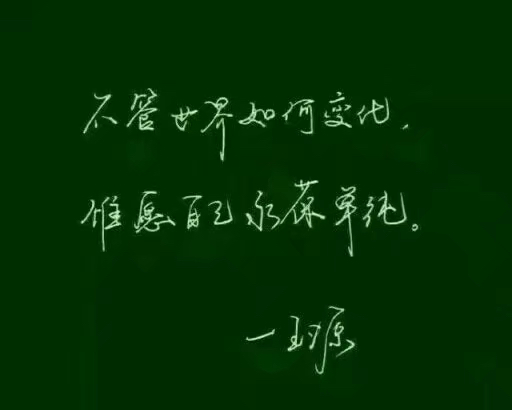 不管世界如何变化，
惟愿自己永葆单纯。
一王源